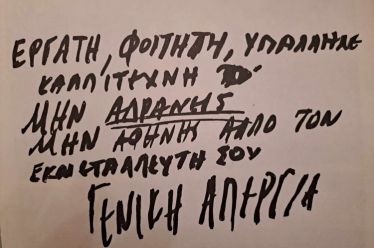 ΕΡΓΑΤΗ, ΦΟΙΤΗΤΗ, ΥΠΑΛΛΗΛΕ
ΚΑΛΛΙΤΕΧΝΗ
ΜΗΝ ΑΔΡΑΝΗΣ
ΜΗΝ ΑΘΗΝΗΣ ΑΛΛΟ ΤΟΝ
ΕΚΜΕΤΑΛΛΕΥΤΗ ΣΟΥ
ΓΕΝΙΚΗ ΑΠΕΡΓΙΑ